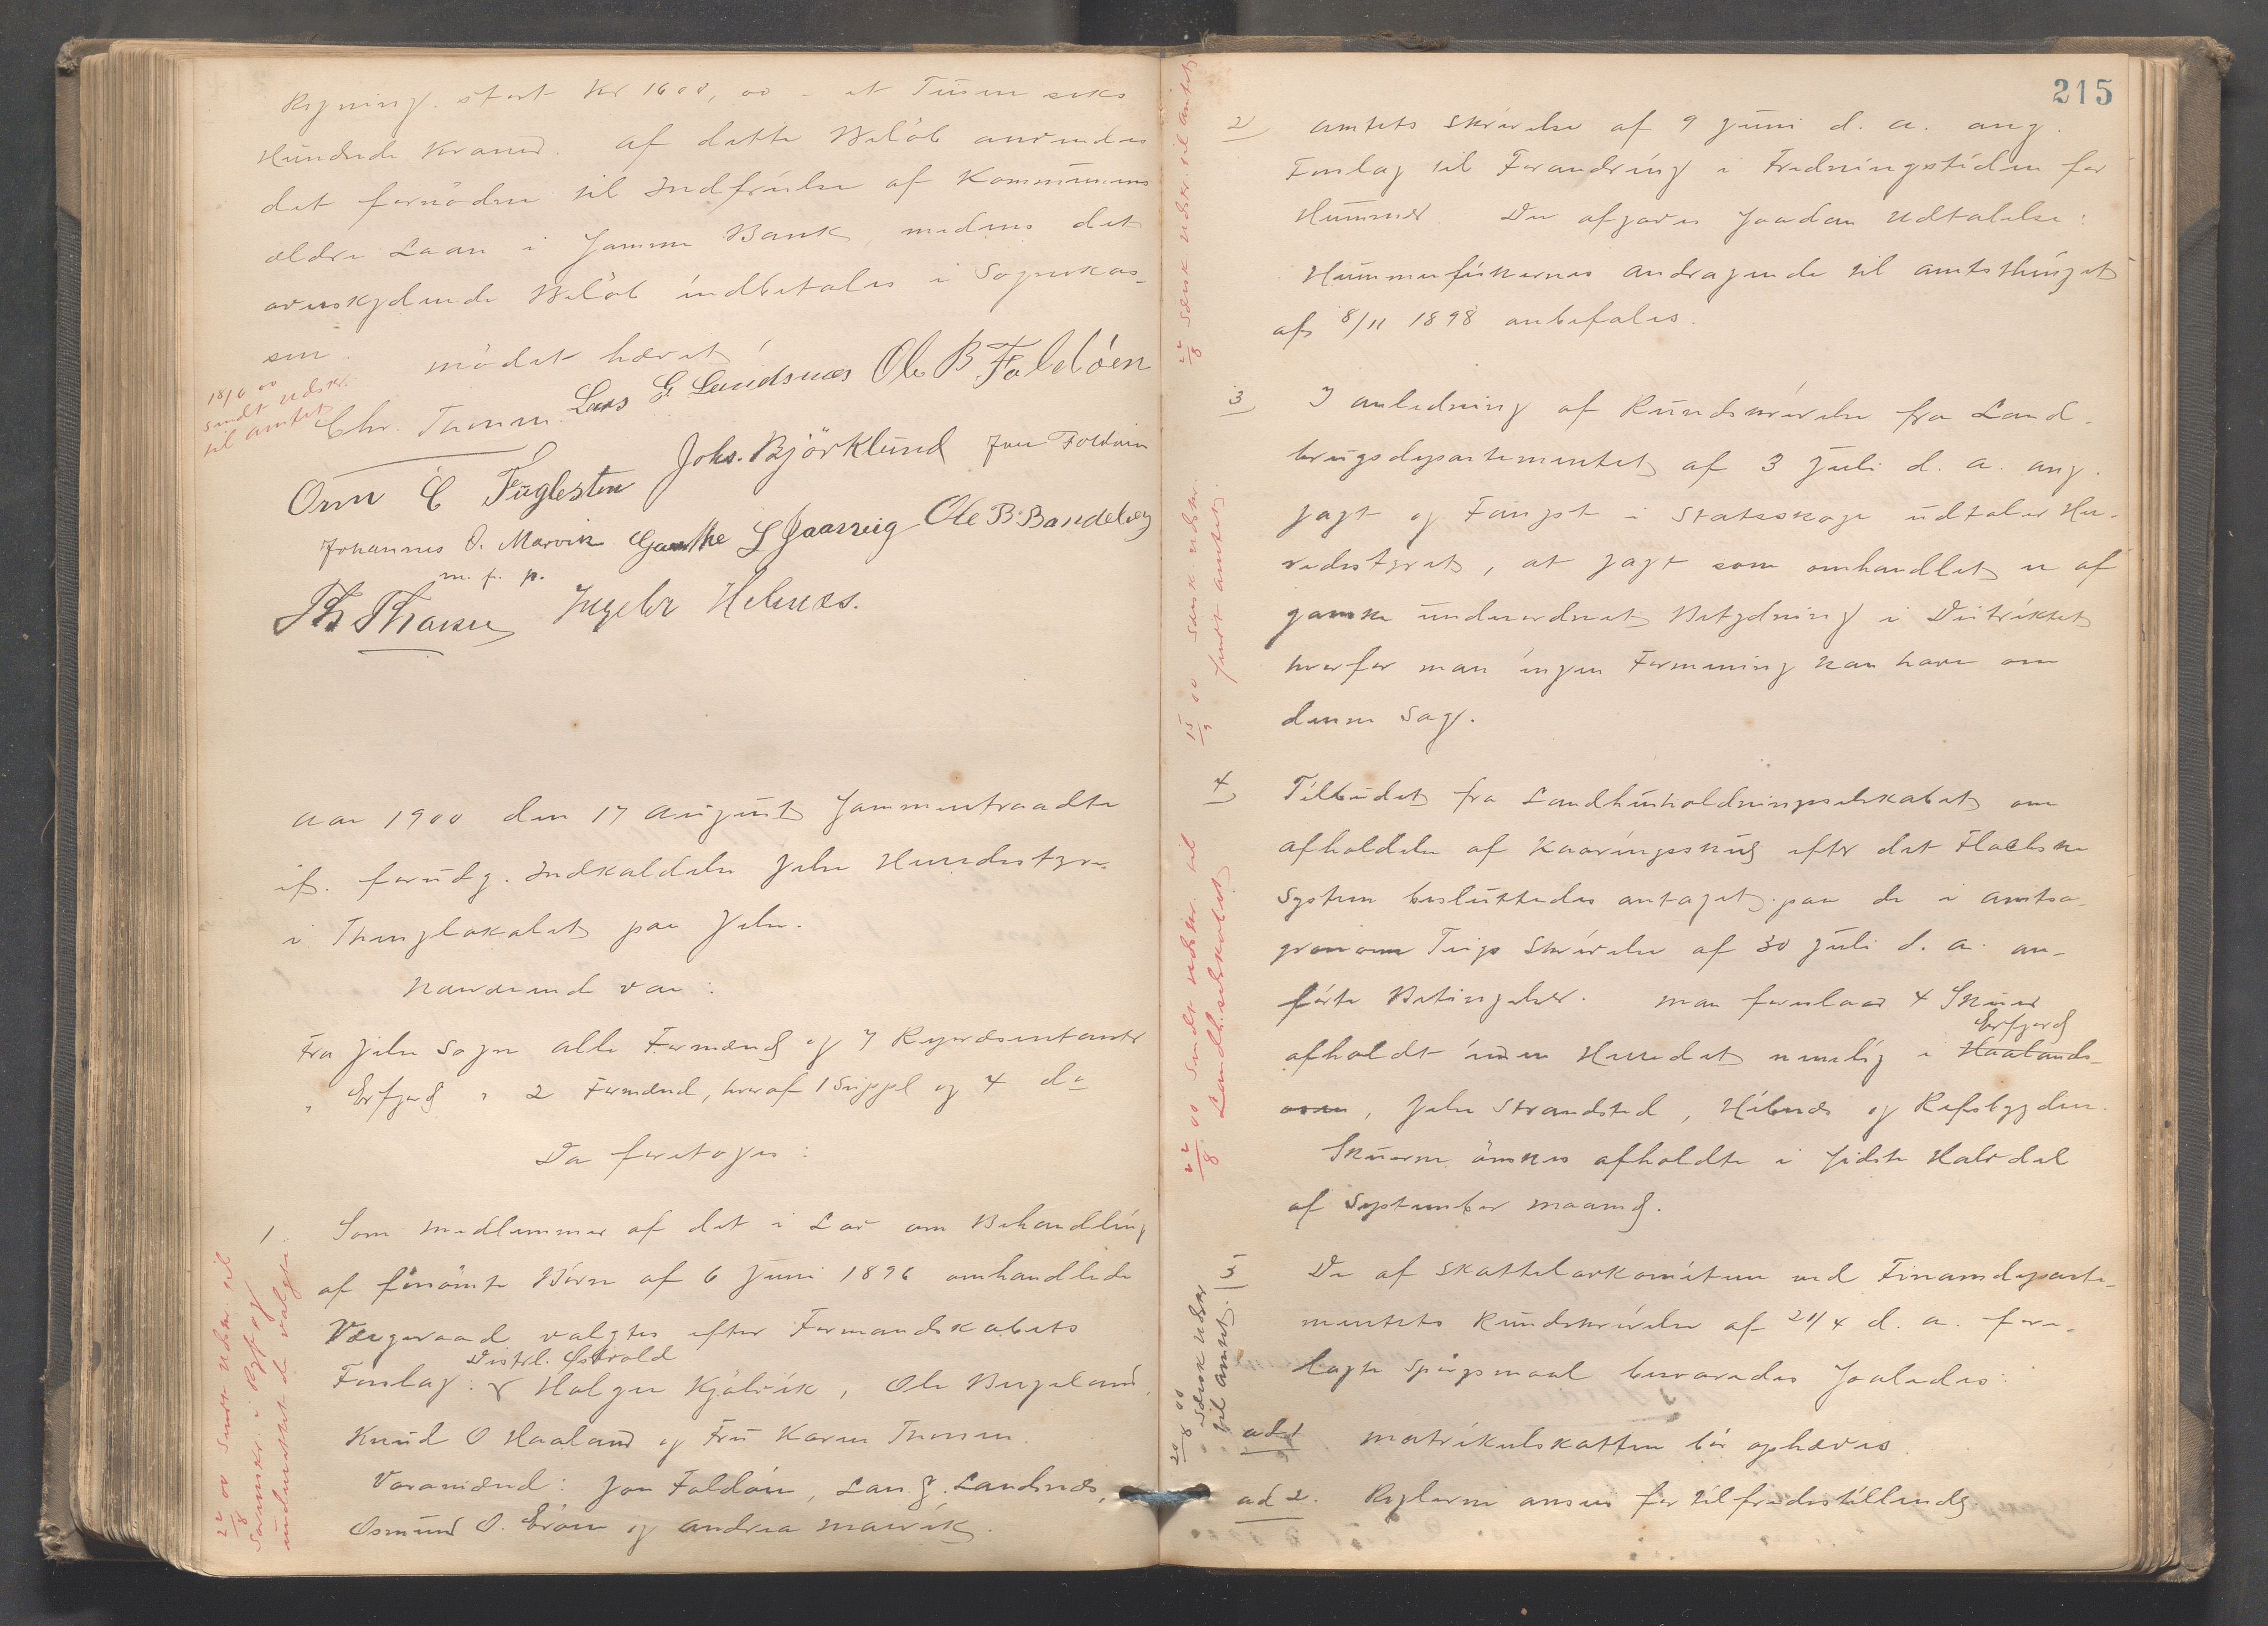 Regning. stort Kr 1600,00 – et Tusen seks
Hundrede Kroner. Af dette Beløb anvendes
det fornødne til Indfrielse af Kommunens
ældre Laan i samme Bank, medens det
overskydende Beløb indbetales i Sognekas-
sen.
Mødet hævet
18/6 00
sendt udskr.
til Amtet
Chr. Thomsen Lars G Landsnæs Ole B. Foldöen
Orm E Fuglesten Johs. Björklund Jon Foldøen
Johannes O. Marvik Gauthe L Jaarvig Ole B. Bandeberg
m. f. p.
Th Thorsen Ingebr Hebnes.
Aar 1900 den 17 August sammentraadte
if. forudg. Indkaldelse Jelse Herredsstyre
i Thinglokalet paa Jelse.
Nærværende var:
Fra Jelse Sogn alle Formænd og 7 Repræsentanter
" Erfjord " 2 Formænd, hvoraf 1 Suppl og 4 do
Da foretoges:
22/8 00 Sendt Udskr. til
Sorenskr. i Ryf. og
underrettet de valgte.
1 Som Medlemmer af det i Lov om Behandling
af forsömte Börn af 6 Juni 1896 omhandlede
Værgeraad valgtes efter Formandskabets
Distrl. Østvold
Forslag: Holger Kjölvik, Ole Bergeland,
Knud O Haaland og Fru Karen Thomsen.
Varamænd: Jon Foldöen, Lars G. Landsnæs,
Osmund O. Eröen og Andrea Marvik.
215
22/8 Særsk. Udskr. til Amtet
2 Amtets Skrivelse af 9 Juni d. a. ang.
Forslag til Forandring i Fredningstiden for
Hummer. Der afgaves saadan Udtalelse:
Hummerfiskernes Andragende til Amtsthinget
af 8/11 1898 anbefales.
15/9 00 Særsk. Udskr.
sendt Amtet
3 I Anledning af Rundskrivelse fra Land-
brugsdepartementet af 3 Juli d. a. ang.
Jagt og Fangst i Statsskoge udtaler Her-
redsstyret, at Jagt som omhandlet er af
ganske underordnet Betydning i Distriktet
hvorfor man ingen Formening kan have om
denne Sag.
22/8 00 Sendt Udskr. til
Landh.selskabet
4 Tilbudet fra Landhusholdningsselskabet om
Afholdelse af Kaaringsskue efter det Flachske
System besluttedes antaget paa de i Amtsa-
gronom Teigs Skrivelse af 30 Juli d. a. an-
förte Betingelser. Man foreslaar 4 Skuer
Erfjord
afholdt inden Herredet nemlig i Haalands-
osen, Jelse Strandsted, Hebnes og Refsbygden.
Skuerne önskes afholdte i sidste Halvdel
af September Maaned.
20/8 00
Særsk Udskr
til Amtet.
5 De af Skattelovkomiteen ved Finansdeparte-
mentets Rundskrivelse af 21/4 d. a. fore-
lagte Spörgsmaal besvaredes saaledes:
ad 1 Matrikulskatten bör ophæves.
ad 2. Reglerne ansees for tilfredsstillende